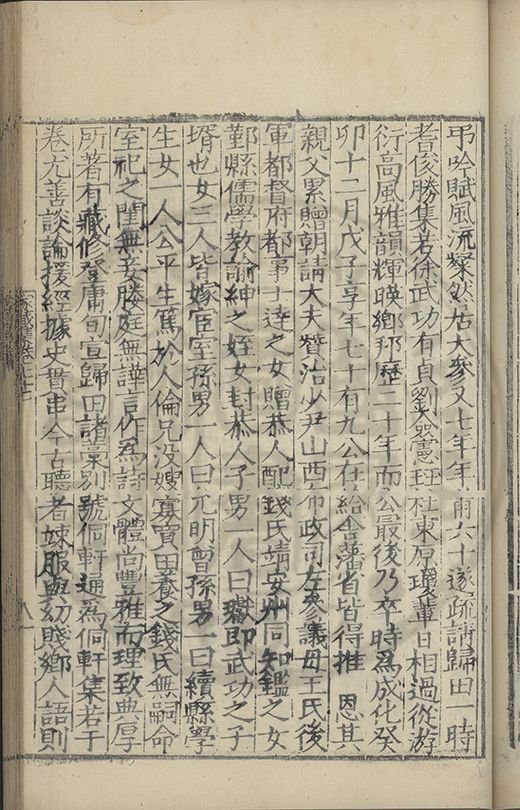 弔吟賦風流燦然居大參又七年年甫六十遂疏請歸田一時
耆俊勝集若徐武功有貞劉僉憲珏杜東原瓊輩日相過從游
衍高風雅韻輝暎鄉邦歷二十年而公最後乃卒時爲成化癸
卯十二月戊子享年七十有九公在給舍藩省皆得推　恩其
親父累贈朝請大夫贊治少尹山西布政司左參議母王氏後
軍都督府都事士達之女贈恭人配錢氏靖安州同知鑑之女
鄞縣儒學教諭紳之姪女封恭人子男一人曰 即武功之子
壻也女三人皆嫁宦室孫男一人曰元明曾孫男一曰續縣學
生女一人公平生篤於人倫兄没嫂寡賓田養之錢氏無嗣命
室祀之閨無妾媵庭無譁言作爲詩文體尚豐雅而理致典厚
所著有藏修登庸旬宣歸田諸藁別號侗軒通爲侗軒集若干
卷尤善談論援經據史貫串今古聽者竦服與幼賤鄉人語則